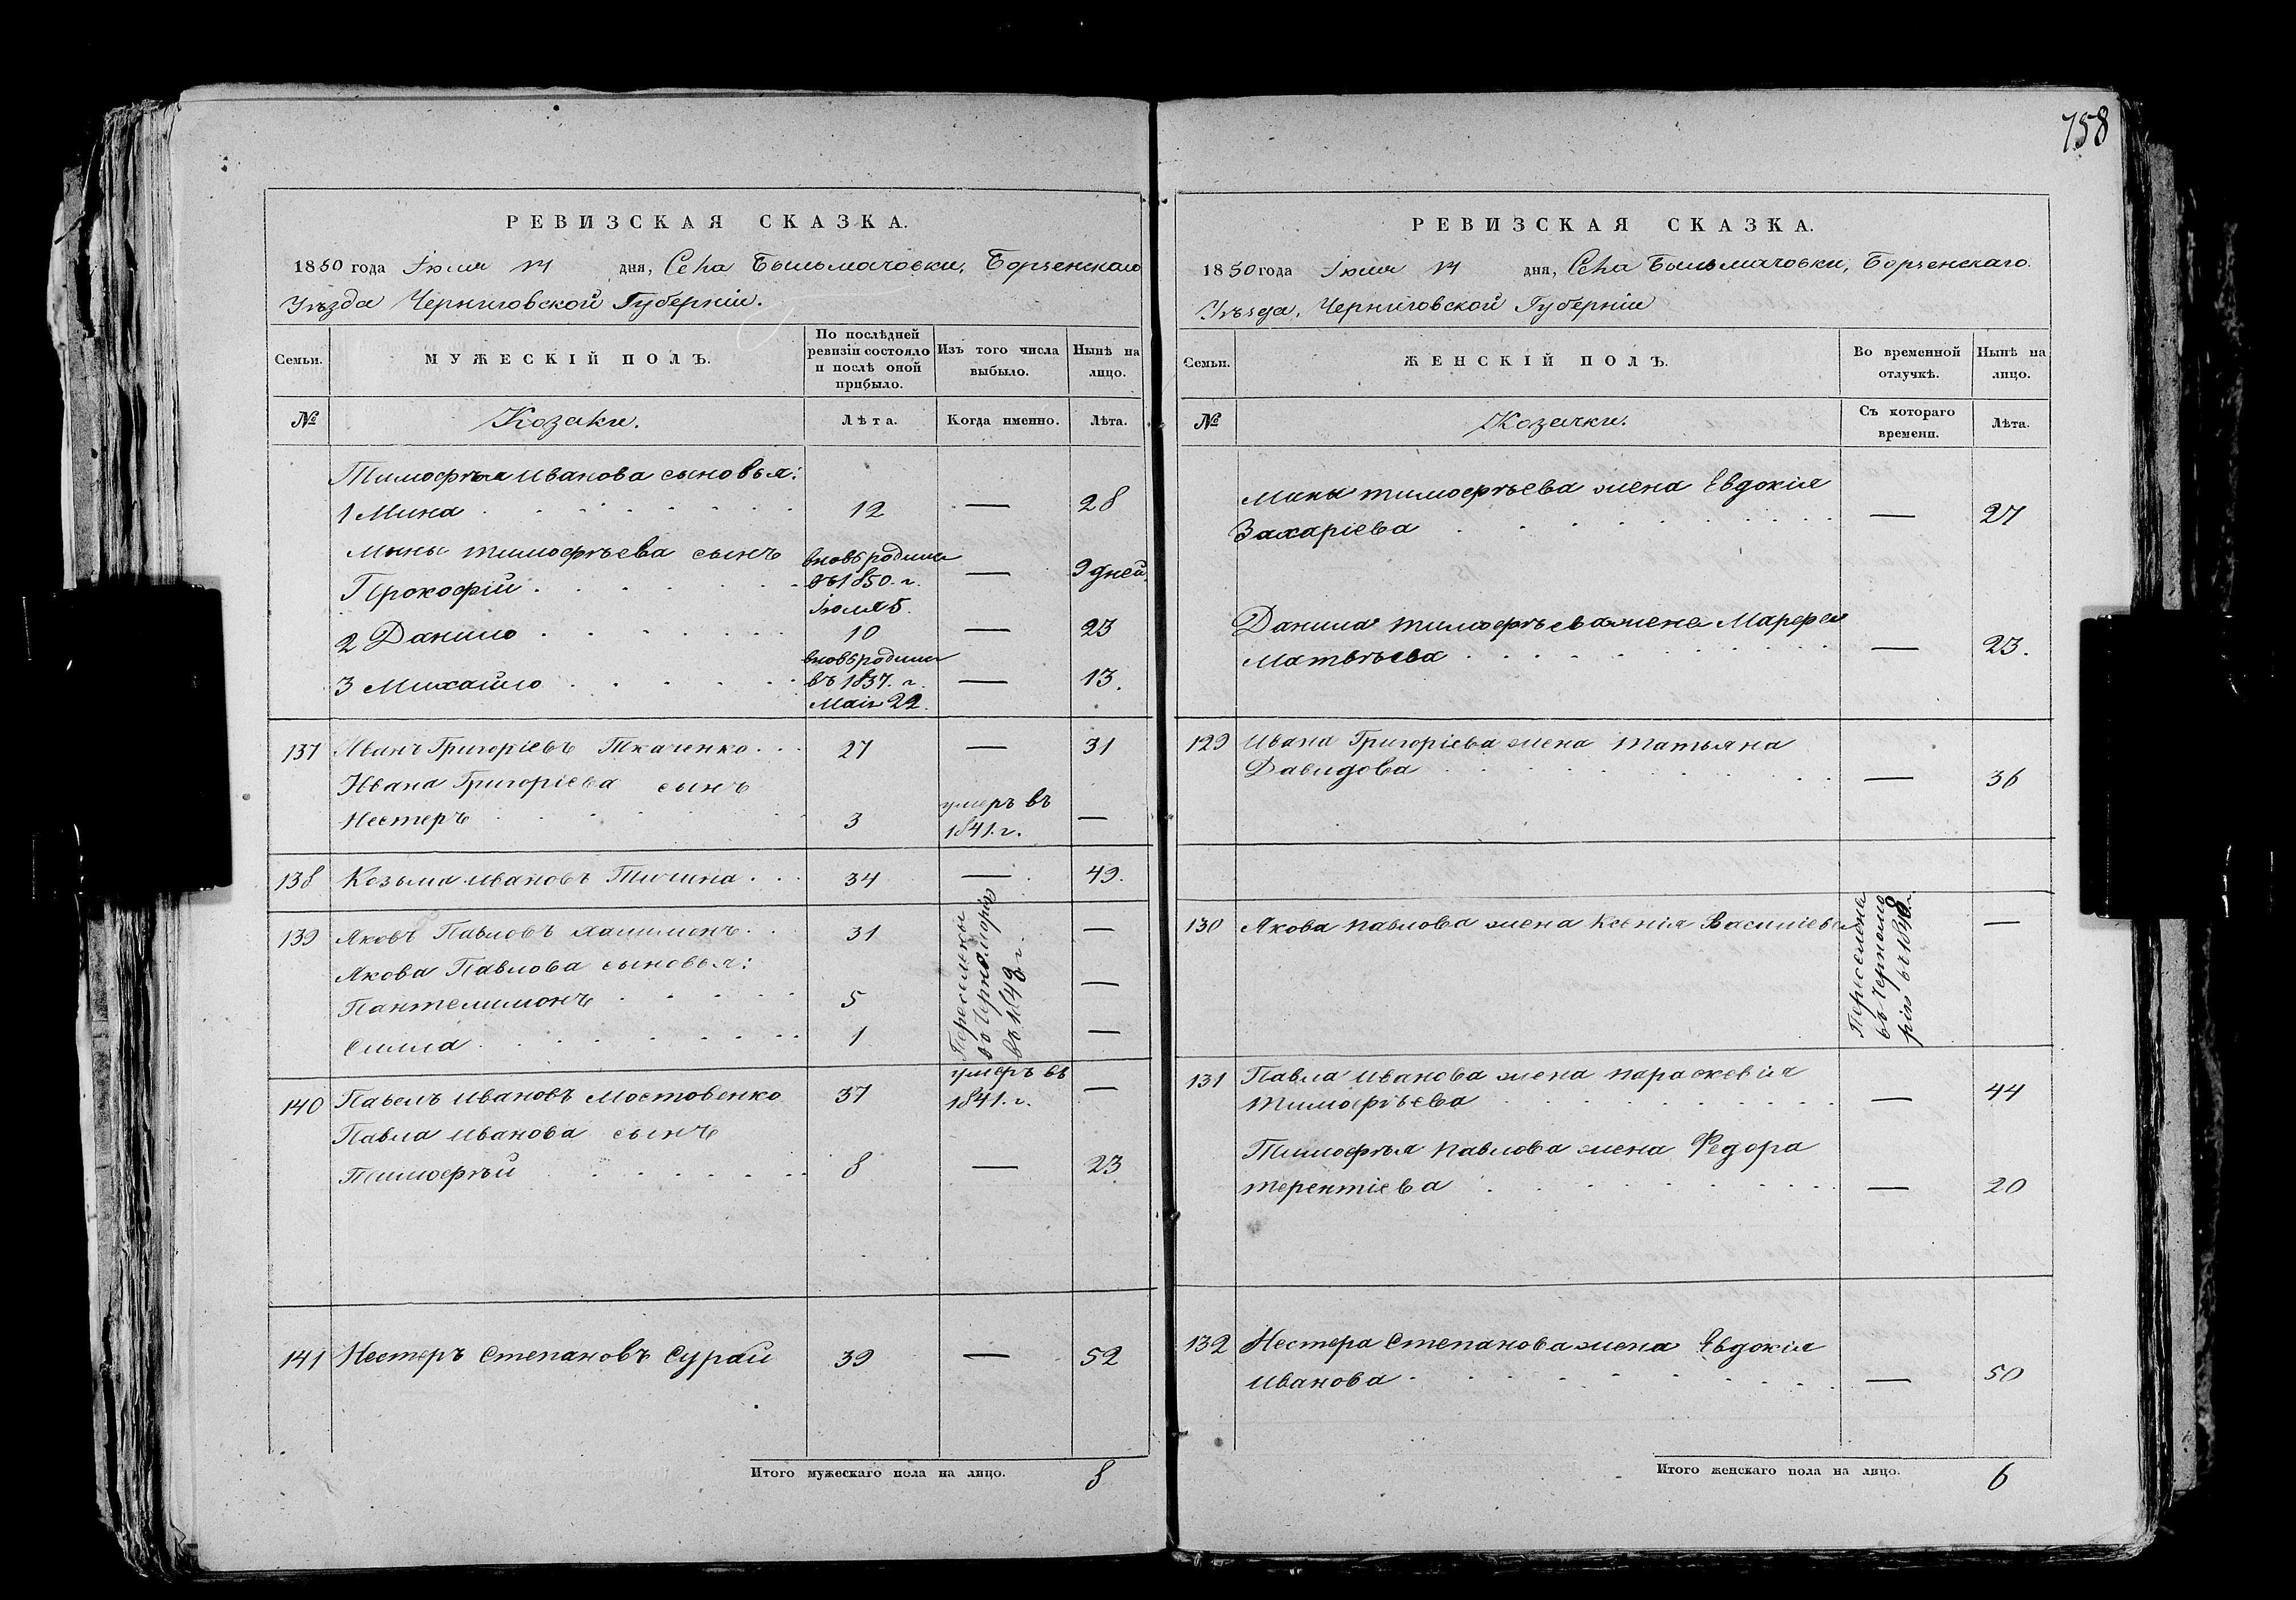 758
РЕВИЗСКАЯ СКАЗКА.
1850 года Іюля 14 дня, Села Бильмачовки, Борзенскаго
Уѣзда Черниговской Губерніи.
Семьи. МУЖЕСКІЙ ПОЛЪ. По послѣдней ревизіи состояло и послѣ оной прибыло. Изъ того числа выбыло. Нынѣ на лицо.
№ Козаки. Лѣта. Когда именно. Лѣта.
Тимофѣя Иванова сыновья:
1 Мина 12 — 28
Мины Тимофѣева сынъ
Прокофій вновь родился въ 1850. г. Іюля 5. — 9 дней
2 Данило 10 — 23
3 Михайло вновь родился въ 1837. г. Маія 22. — 13.
137 Иванъ Григоріевъ Ткаченко 27 — 31
Ивана Григоріева сынъ
Нестеръ 3 умеръ въ 1841. г. —
138 Козьма Ивановъ Тичина 34 — 49.
139 Яковъ Павловъ Халимонъ 31 —
Якова Павлова сыновья:
Пантелимонъ 5 —
Силла 1 —
Переселены въ Черноморію въ 1848 г.
140 Павелъ Ивановъ Мостовенко 37 умеръ въ 1841. г. —
Павла Иванова сынъ
Тимофѣй 8 — 23
141 Нестеръ Степановъ Сурай 39 — 52
Итого мужескаго пола на лицо. 8
РЕВИЗСКАЯ СКАЗКА.
1850 года Іюля 14 дня, Села Бильмачовки, Борзенскаго
Уѣзда, Черниговской Губерніи
Семьи. ЖЕНСКІЙ ПОЛЪ. Во временной отлучкѣ. Нынѣ на лицо.
№ Козачки. Съ котораго времени. Лѣта.
Мины Тимофѣева жена Евдокія
Захаріева — 27
Данила Тимофѣева жена Марефа
Матвѣева — 23.
129 Ивана Григоріева жена Татьяна
Давидова — 36
130 Якова Павлова жена Ксенія Василіева —
Переселена въ Черноморію въ 1848 г.
131 Павла Иванова жена Параскевія
Тимофѣева — 44
Тимофѣя Павлова жена Федора
Терентіева — 20
132 Нестера Степанова жена Евдокія
Иванова — 50
Итого женскаго пола на лицо. 6